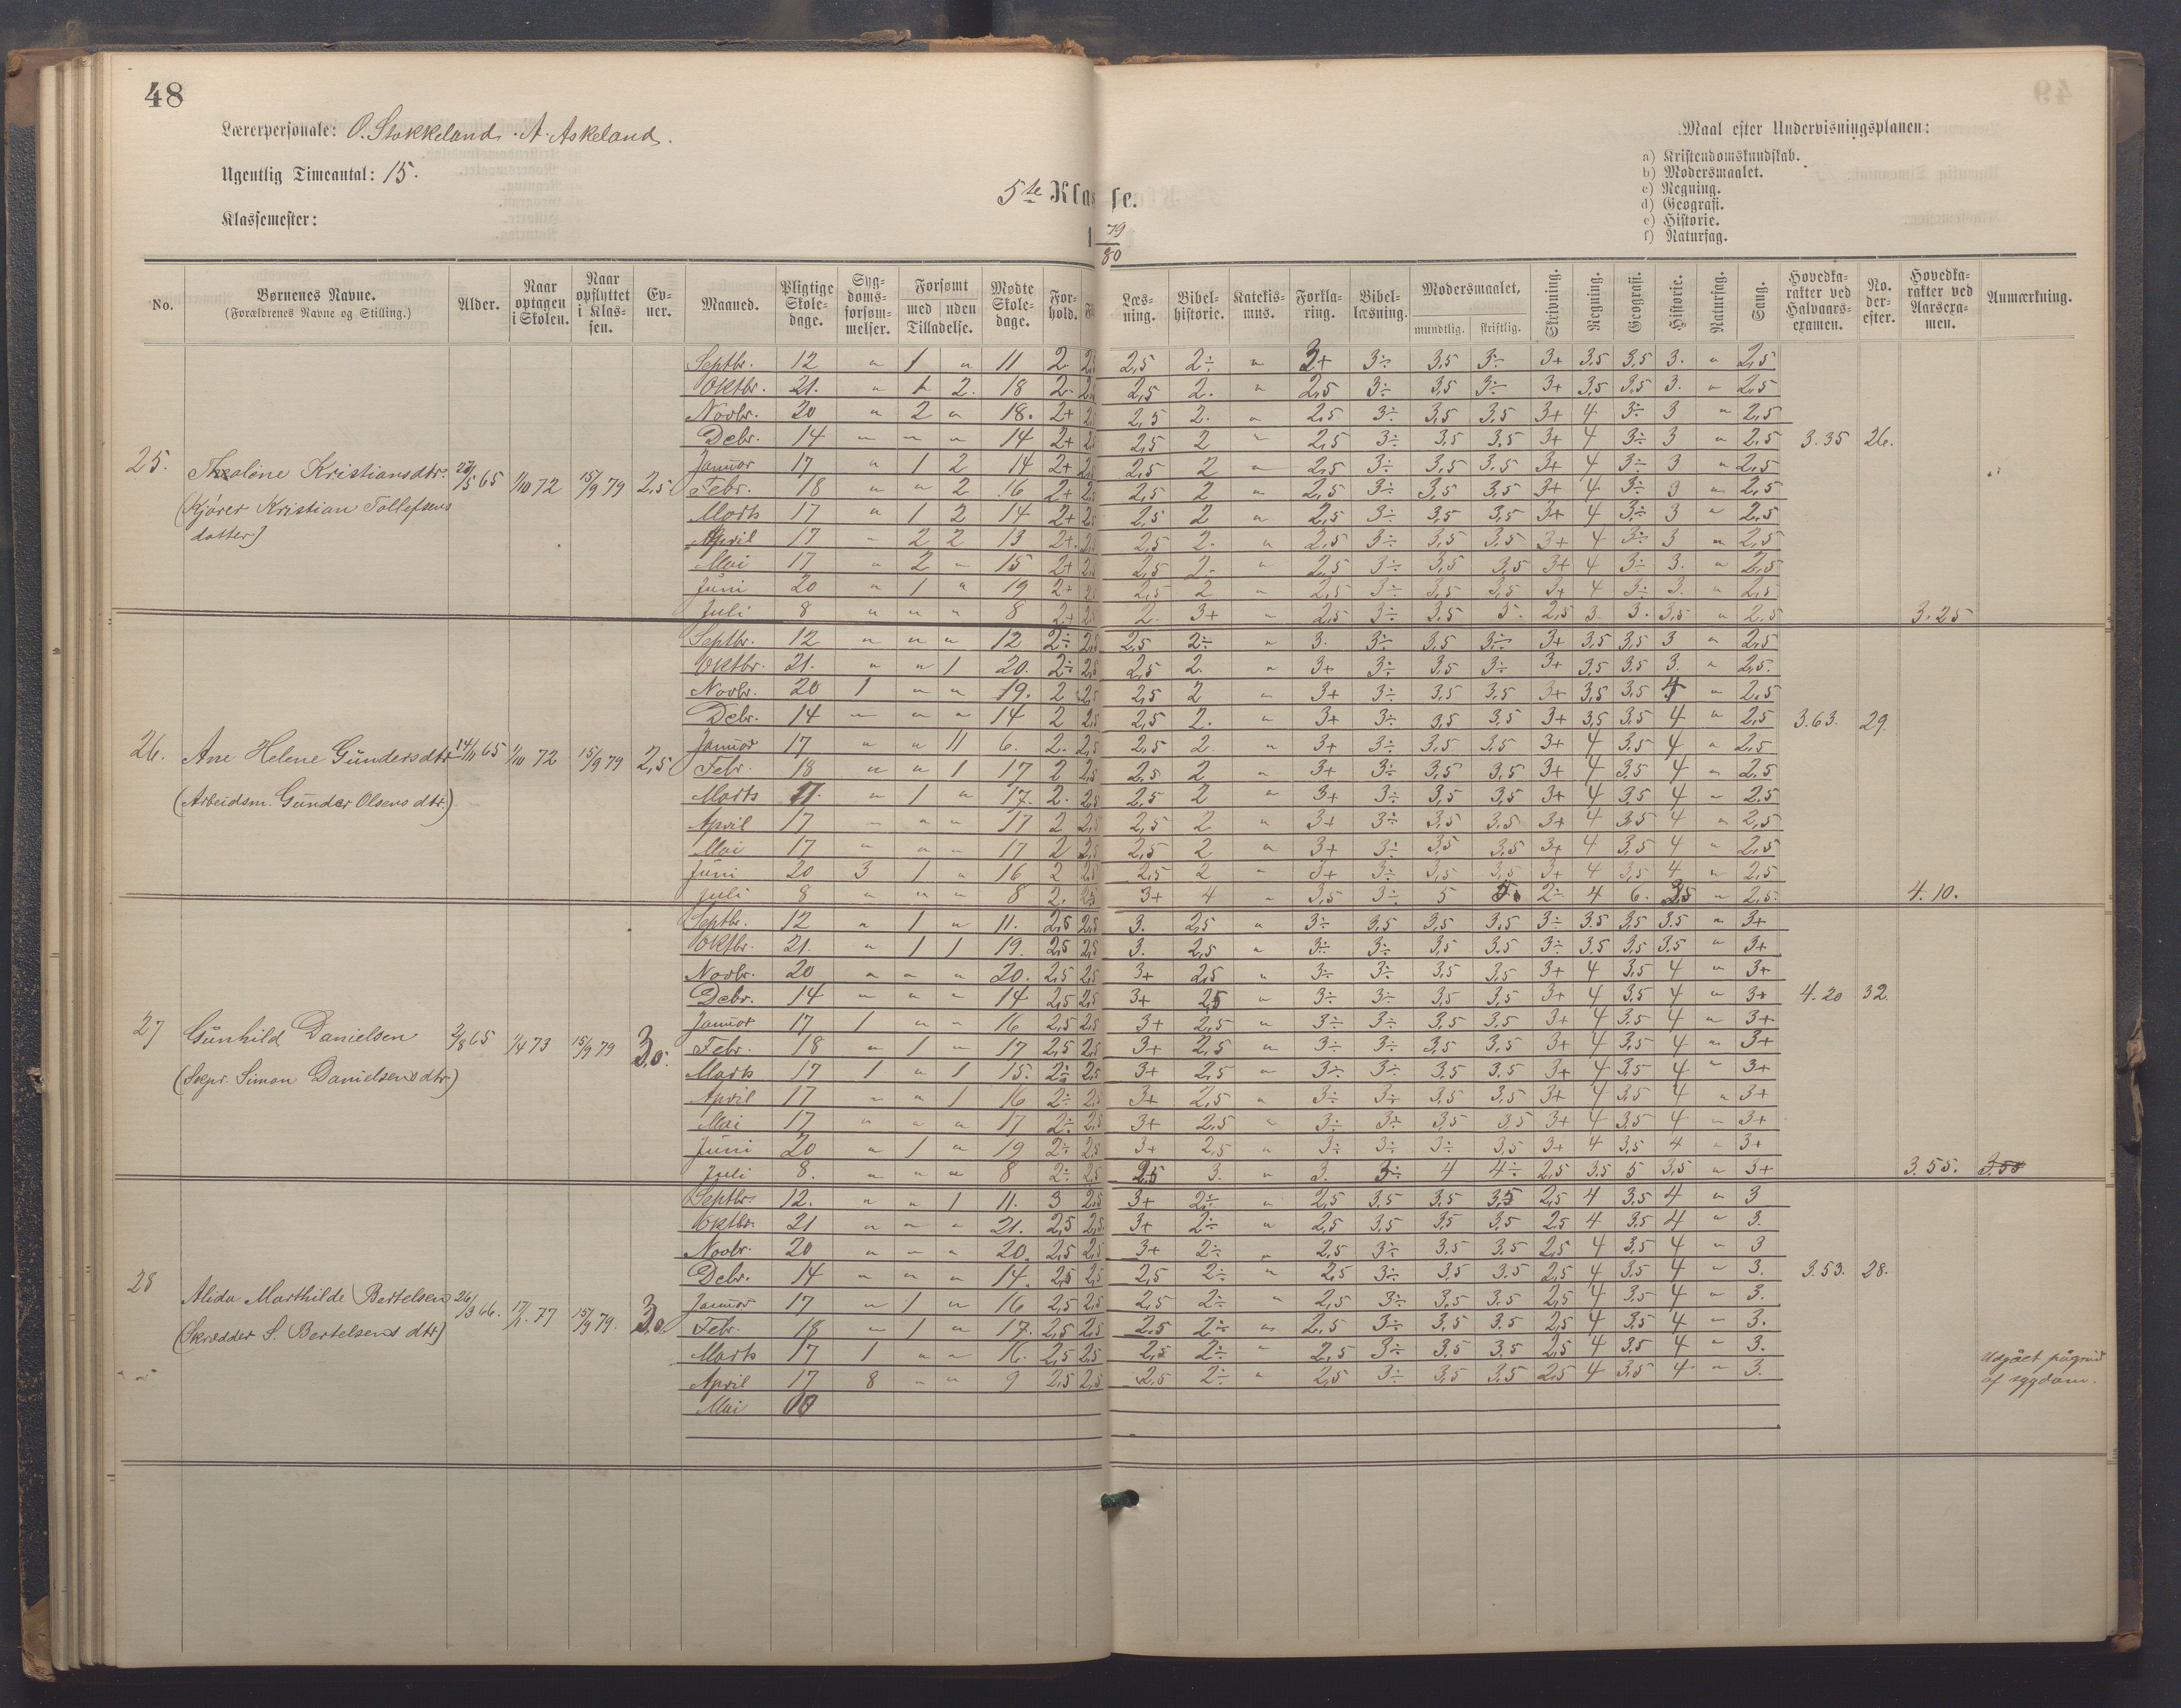 48
49
Lærerpersonale: O. Stokkeland. A. Askeland.
Ugentlig Timeantal: 15.
Klassemester:
5te Klasse.
1 79/80
Maal efter Undervisningsplanen:
a) Kristendomskundskab.
b) Modersmaalet.
c) Regning.
d) Geografi.
e) Historie.
f) Naturfag.
No. Børnenes Navne. (Forældrenes Navne og Stilling.) Alder. Naar optagen i Skolen. Naar opflyttet i Klassen. Evner. Maaned. Pligtige Skoledage. Sygdomsforsømmelser. Forsømt med uden Tilladelse. Mødte Skoledage. Forhold. Læsning. Bibelhistorie. Katekismus. Forklaring. Bibellæsning. Modersmaalet, mundtlig. skriftlig. Skrivning. Regning. Geografi. Historie. Naturfag. Sang. Hovedkarakter ved Halvaarsexamen. No. derefter. Hovedkarakter ved Aarsexamen. Anmærkning.
Septbr. 12 " 1 " 11 2 2,5 2,5 2÷ " 3+ 3÷ 3,5 3÷ 3+ 3,5 3,5 3. " 2,5
Oktbr. 21. " 1 2. 18 2 2,5 2,5 2. " 2,5 3÷ 3,5 3÷ 3+ 3,5 3,5 3. " 2,5
Novbr. 20 " 2 " 18. 2+ 2,5 2,5 2. " 2,5 3÷ 3,5 3,5 3+ 4 3÷ 3 " 2,5
Debr. 14 " " " 14 2+ 2,5 2,5 2 " 2,5 3÷ 3,5 3,5 3+ 4 3÷ 3 " 2,5 3.35 26.
25. Thaline Kristiansdtr. 1/10 72 15/9 79 2,5
(Kjører Kristian Tollefsens
datter)
Januar 17 " 1 2 14 2+ 2,5 2,5 2 " 2,5 3÷ 3,5 3,5 3+ 4 3÷ 3 " 2,5
Febr. 18 " " 2 16 2+ 2,5 2,5 2 " 2,5 3÷ 3,5 3,5 3+ 4 3÷ 3 " 2,5
Marts 17 " 1 2 14 2+ 2,5 2,5 2 " 2,5 3÷ 3,5 3,5 3+ 4 3÷ 3 " 2,5
April 17 " 2 2 13 2+ 2,5 2,5 2. " 2,5 3÷ 3,5 3,5 3+ 4 3÷ 3 " 2,5
Mai 17 " 2 " 15 2+ 2,5 2,5 2. " 2,5 3÷ 3,5 3,5 3+ 4 3÷ 3. " 2,5
Juni 20 " 1 " 19 2+ 2,5 2,5 2 " 2,5 3÷ 3,5 3,5 3+ 4 3÷ 3. " 2,5
Juli 8 " " " 8 2+ 2,5 2. 3+ " 2,5 3÷ 3,5 5. 2,5 3. 3. 3,5 " 2,5 3.25
Septbr. 12 " " " 12 2÷ 2,5 2,5 2÷ " 3. 3÷ 3,5 3÷ 3+ 3,5 3,5 3 " 2,5
Oktbr. 21. " " 1 20. 2÷ 2,5 2,5 2. " 3+ 3÷ 3,5 3÷ 3+ 3,5 3,5 3. " 2,5.
Novbr. 20 1 " " 19. 2 2,5 2,5 2 " 3+ 3÷ 3,5 3,5 3+ 3,5 3,5 4 " 2,5
Debr. 14 " " " 14 2 2,5 2,5 2. " 3+ 3÷ 3,5 3,5 3+ 3,5 3,5 4 " 2,5 3.63. 29.
26. Ane Helene Gundersdtr. 14/11 65 1/10 72 15/9 79 2,5
(Arbeidsm. Gunder Olsens dtr.)
Januar 17 " " 11 6. 2. 2,5 2,5 2. " 3+ 3÷ 3,5 3,5 3+ 4 3,5 4 " 2,5
Febr. 18 " " 1 17 2 2,5 2,5 2 " 3+ 3÷ 3,5 3,5 3+ 4 3,5 4 " 2,5
Marts 17. " 1 " 17. 2. 2,5 2,5 2 " 3+ 3÷ 3,5 3,5 3+ 4 3,5 4 " 2,5
April 17 " " " 17 2 2,5 2,5 2 " 3+ 3÷ 3,5 3,5 3+ 4 3,5 4 " 2,5
Mai 17 " " " 17 2 2,5 2,5 2 " 3+ 3÷ 3,5 3,5 3+ 4 3,5 4 " 2,5
Juni 20 3 1 " 16 2 2,5 2,5 2 " 3+ 3÷ 3,5 3,5 3+ 4 3,5 4 " 2,5
Juli 8 " " " 8 2. 2,5 3+ 4 " 3,5 3÷ 5 5. 2÷ 4 6. 3,5 " 2,5. 4.10.
Septbr. 12 " 1 " 11. 2,5 2,5 3. 2,5 " 3÷ 3,5 3,5 3,5 3÷ 3,5 3,5 3,5 " 3+
Oktbr. 21. " 1 1 19. 2,5 2,5 3. 2,5 " 3÷ 3÷ 3,5 3,5 3÷ 3,5 3,5 3,5 " 3+
Novbr. 20 " " " 20. 2,5 2,5 3+ 2,5 " 3÷ 3÷ 3,5 3,5 3+ 4 3,5 4 " 3+
Debr. 14 " " " 14 2,5 2,5 3+ 2,5 " 3÷ 3÷ 3,5 3,5 3+ 4 3,5 4 " 3+ 4.20 32.
27 Gunhild Danielsen 2/8 65 1/4 73 15/9 79 3,0.
(Skpr. Simon Danielsens dtr)
Januar 17 1 " " 16 2,5 2,5 3+ 2,5 " 3÷ 3÷ 3,5 3,5 3+ 4 3,5 4 " 3+
Febr. 18 " 1 " 17 2,5 2,5 3+ 2,5 " 3÷ 3÷ 3,5 3,5 3+ 4 3,5 4 " 3+
Marts 17 1 " 1 15. 2÷ 2,5 3+ 2,5 " 3÷ 3÷ 3,5 3,5 3+ 4 3,5 4 " 3+
April 17 " " 1 16 2÷ 2,5 3+ 2,5 " 3÷ 3÷ 3,5 3,5 3+ 4 3,5 4 " 3+
Mai 17 " " " 17 2÷ 2,5 3+ 2,5 " 3÷ 3÷ 3,5 3,5 3+ 4 3,5 4 " 3+
Juni 20 " 1 " 19 2÷ 2,5 3+ 2,5 " 3÷ 3÷ 3÷ 3,5 3+ 4 3,5 4 " 3+
Juli 8. " " " 8 2÷ 2,5 2,5 3. " 3. 3÷ 4 4÷ 2,5 3,5 5 3,5 " 3+ 3.55. 3.50
Septbr. 12. " " 1 11. 3 2,5 3+ 2÷ " 2,5 3,5 3,5 3,5 2,5 4 3,5 4 " 3
Oktbr. 21 " " " 21. 2,5 2,5 3+ 2÷ " 2,5 3,5 3,5 3,5 2,5 4 3,5 4 " 3.
Novbr. 20 " " " 20. 2,5 2,5 3+ 2÷ " 2,5 3÷ 3,5 3,5 2,5 4 3,5 4 " 3
Debr. 14 " " " 14. 2,5 2,5 2,5 2÷ " 2,5 3÷ 3,5 3,5 2,5 4 3,5 4 " 3. 3.53. 28.
28 Alida Marthilde Bertelsen 26/3 66. 17/1. 77 15/9 79. 3,0
(Skrædder S. Bertelsens dtr)
Januar 17 " 1 " 16 2,5 2,5 2,5 2÷ " 2,5 3÷ 3,5 3,5 2,5 4 3,5 4 " 3.
Febr. 18 " 1 " 17. 2,5 2,5 2,5 2÷ " 2,5 3÷ 3,5 3,5 2,5 4 3,5 4 " 3.
Marts 17 1 " " 16. 2,5 2,5 2,5 2÷ " 2,5 3÷ 3,5 3,5 2,5 4 3,5 4 " 3.
April 17 8 " " 9 2,5 2,5 2,5 2÷ " 2,5 3÷ 3,5 3,5 2,5 4 3,5 4 " 3.
Udgået pågrund
af sygdom.
Mai